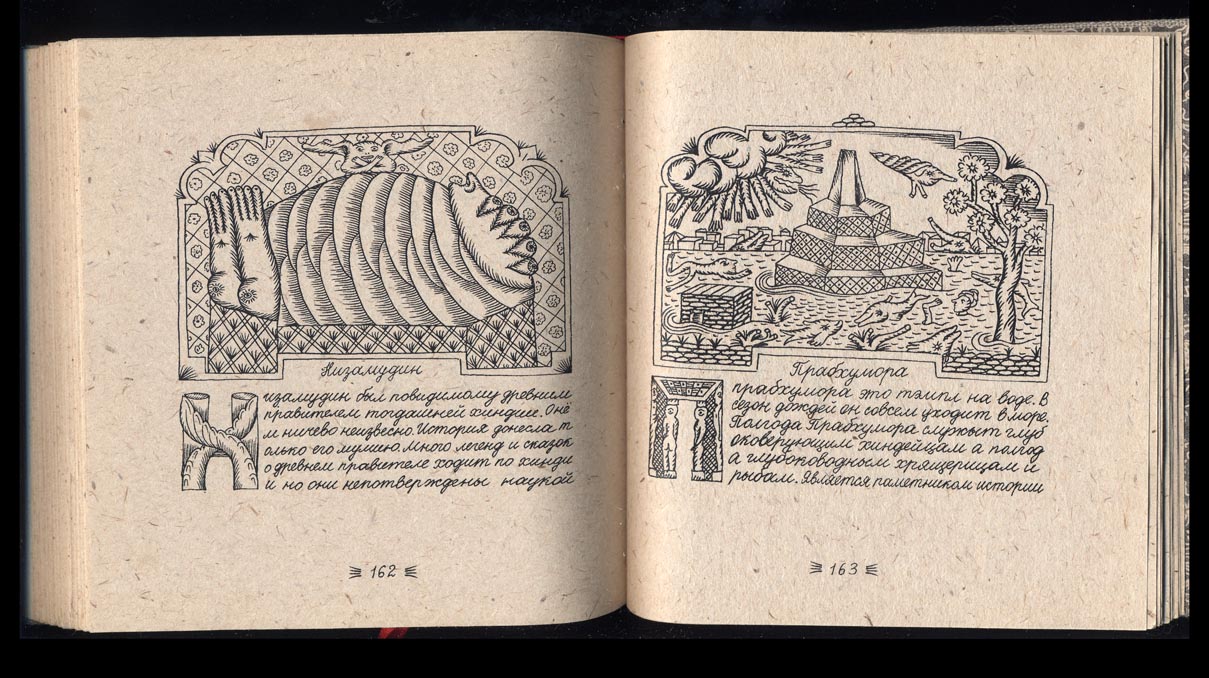 Низамудин
Низамудин был повидимому древним
правителем тогдашней хиндии. О нё
м ничево неизвесно. История донесла т
олько его мумию. Много легенд и сказок
о древнем правителе ходит по хинди
и но они непотверждены наукой
162
Прабхумора
Прабхумора это тэмпл на воде. В
сезон дождей он совсем уходит в море.
Полгода Прабхумора служыт глуб
оковерующим хиндейцам а полгод
а глубоководным хрящерицам и
рыбам. Является паметником истории
163